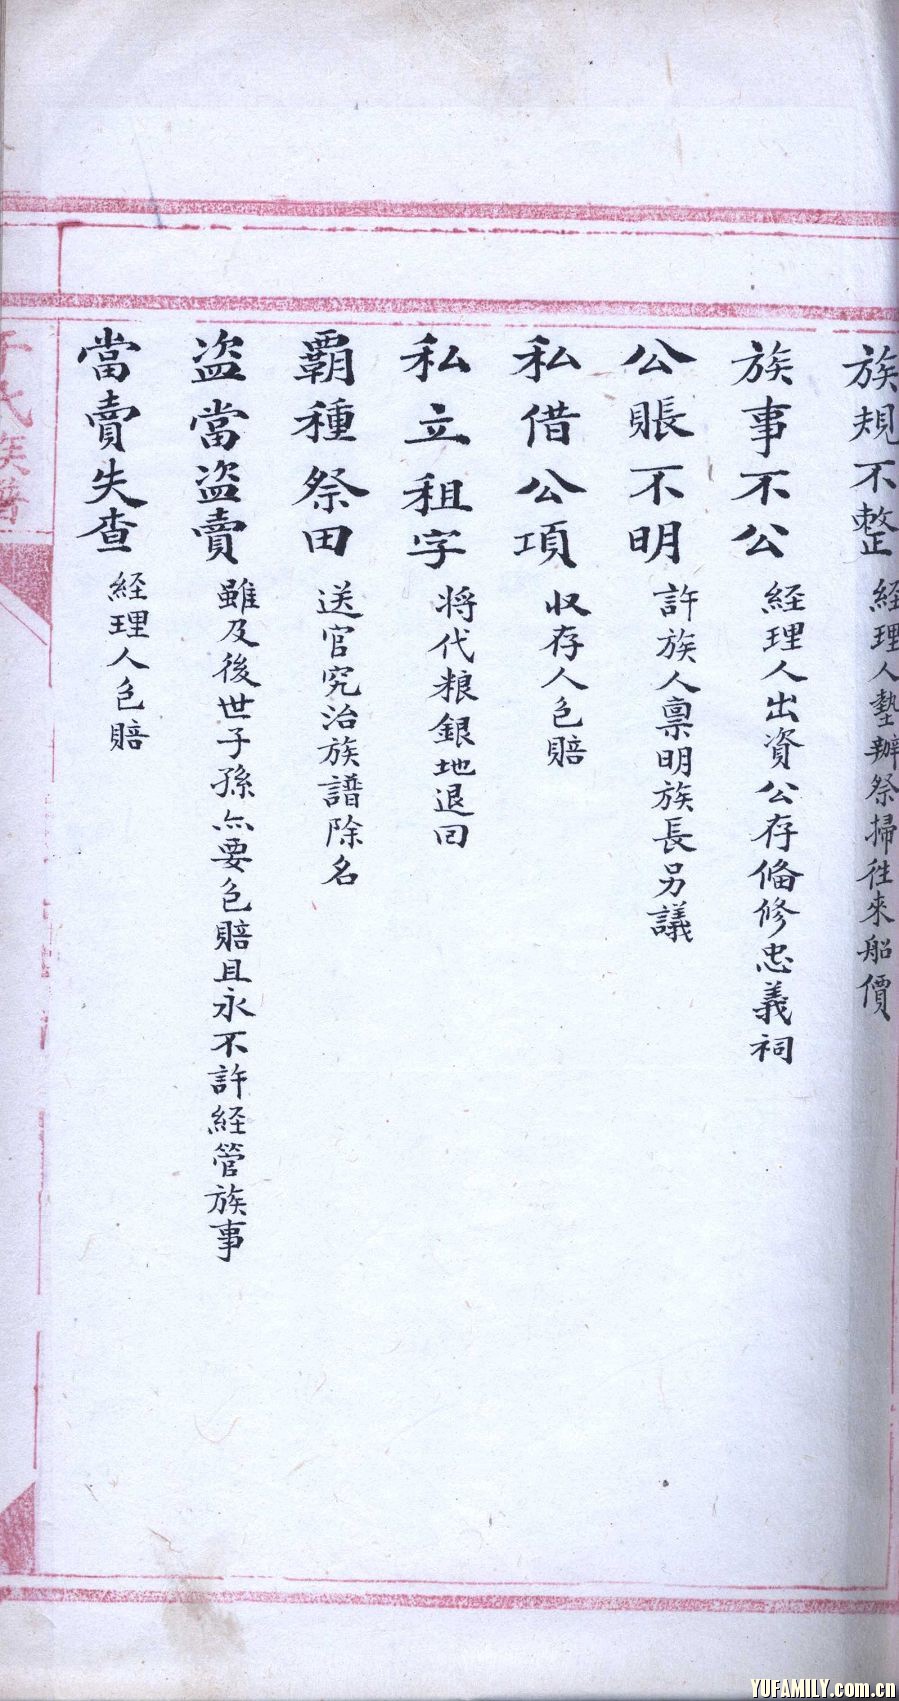 族規不整 経理人墊辦祭掃往來船價
族事不公 経理人出資公存俻修忠義祠
公賬不明 許族人禀明族長另議
私借公項 収存人包賠
私立租字 将代粮銀地退回
霸種祭田 送官究治族譜除名
盜當盜賣 雖及後世子孫亦要包賠且永不許経管族事
當賣失查 経理人包賠
于氏族譜
YUFAMILY.com.cn